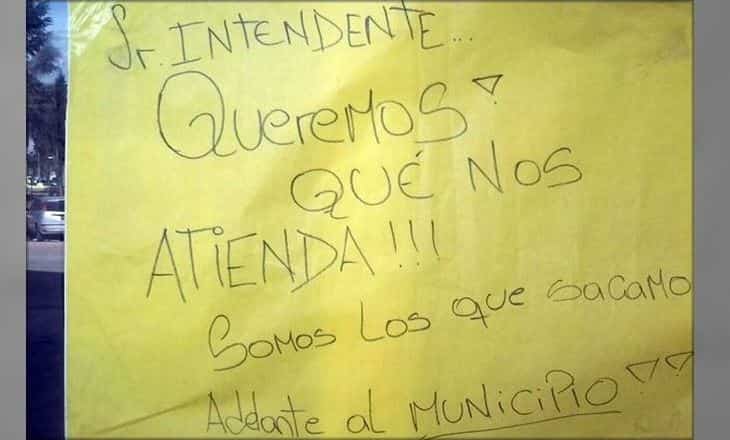 Sr. INTENDENTE...
QuereMOS
QUÉ NOS
ATiENDA!!!
SOMOS LOS que SACAMO
Adelante al MUNiCiPiO